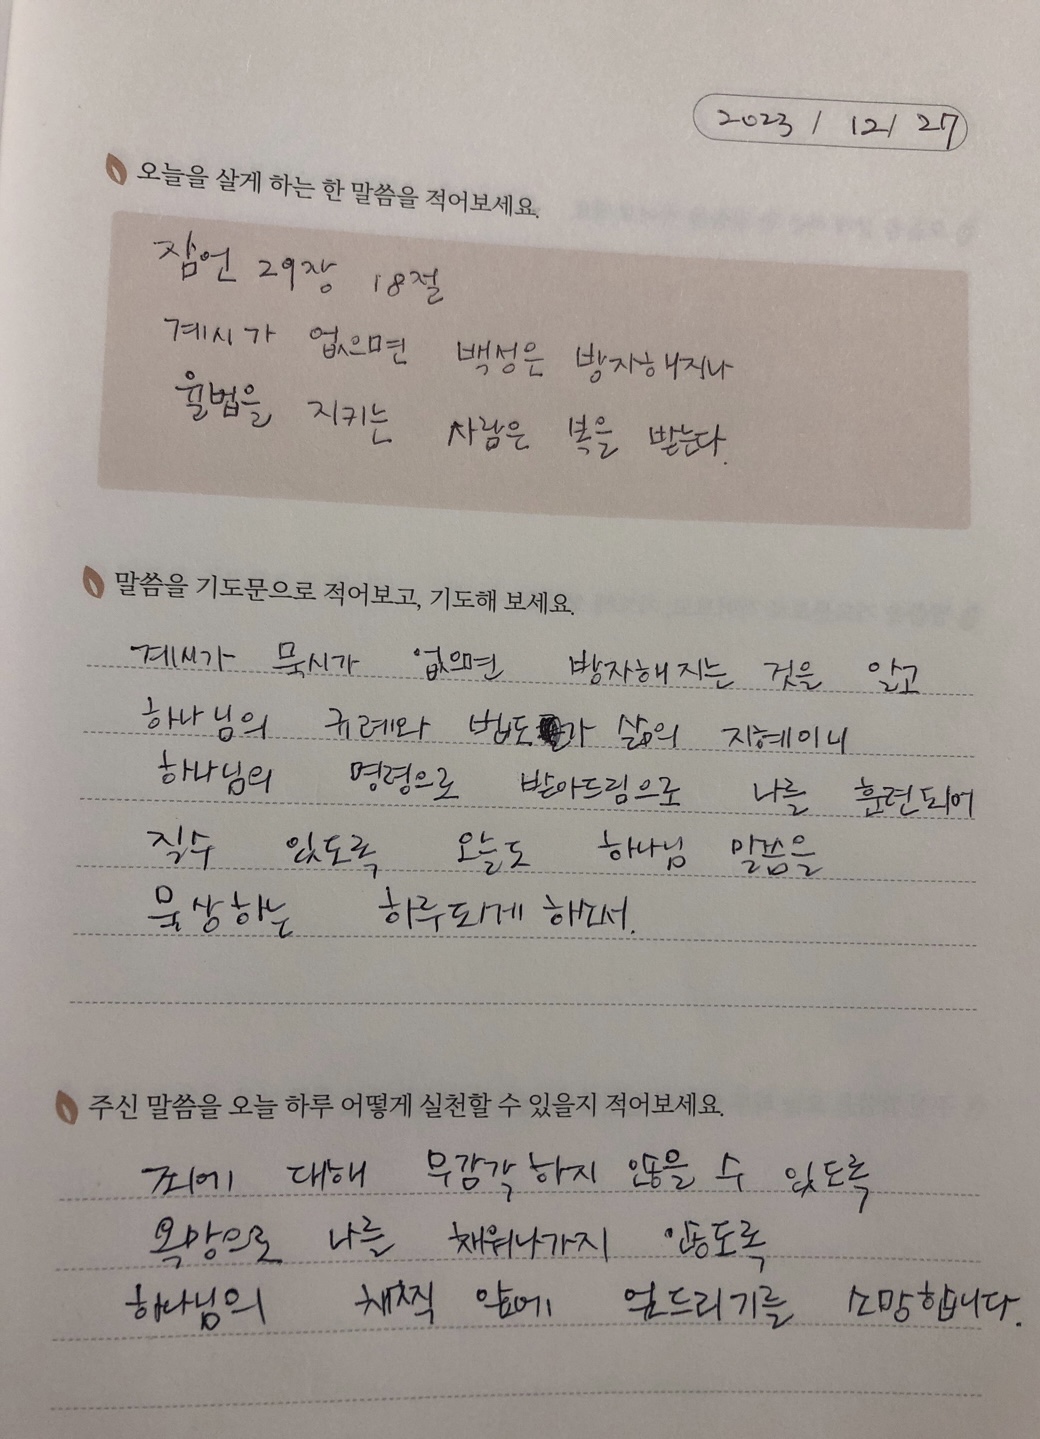 2023 / 12 / 27
오늘을 살게 하는 한 말씀을 적어보세요.
잠언 29장 18절
계시가 없으면 백성은 방자해지나
율법을 지키는 사람은 복을 받는다.
말씀을 기도문으로 적어보고, 기도해 보세요.
계시가 묵시가 없으면 방자해지는 것을 알고
하나님의 규례와 법도가 삶의 지혜이니
하나님의 명령으로 받아드림으로 나를 훈련되어
질수 있도록 오늘도 하나님 말씀을
묵상하는 하루되게 하소서.
주신 말씀을 오늘 하루 어떻게 실천할 수 있을지 적어보세요.
죄에 대해 무감각하지 않을 수 있도록
욕망으로 나를 채워나가지 않도록
하나님의 채찍 앞에 엎드리기를 소망합니다.